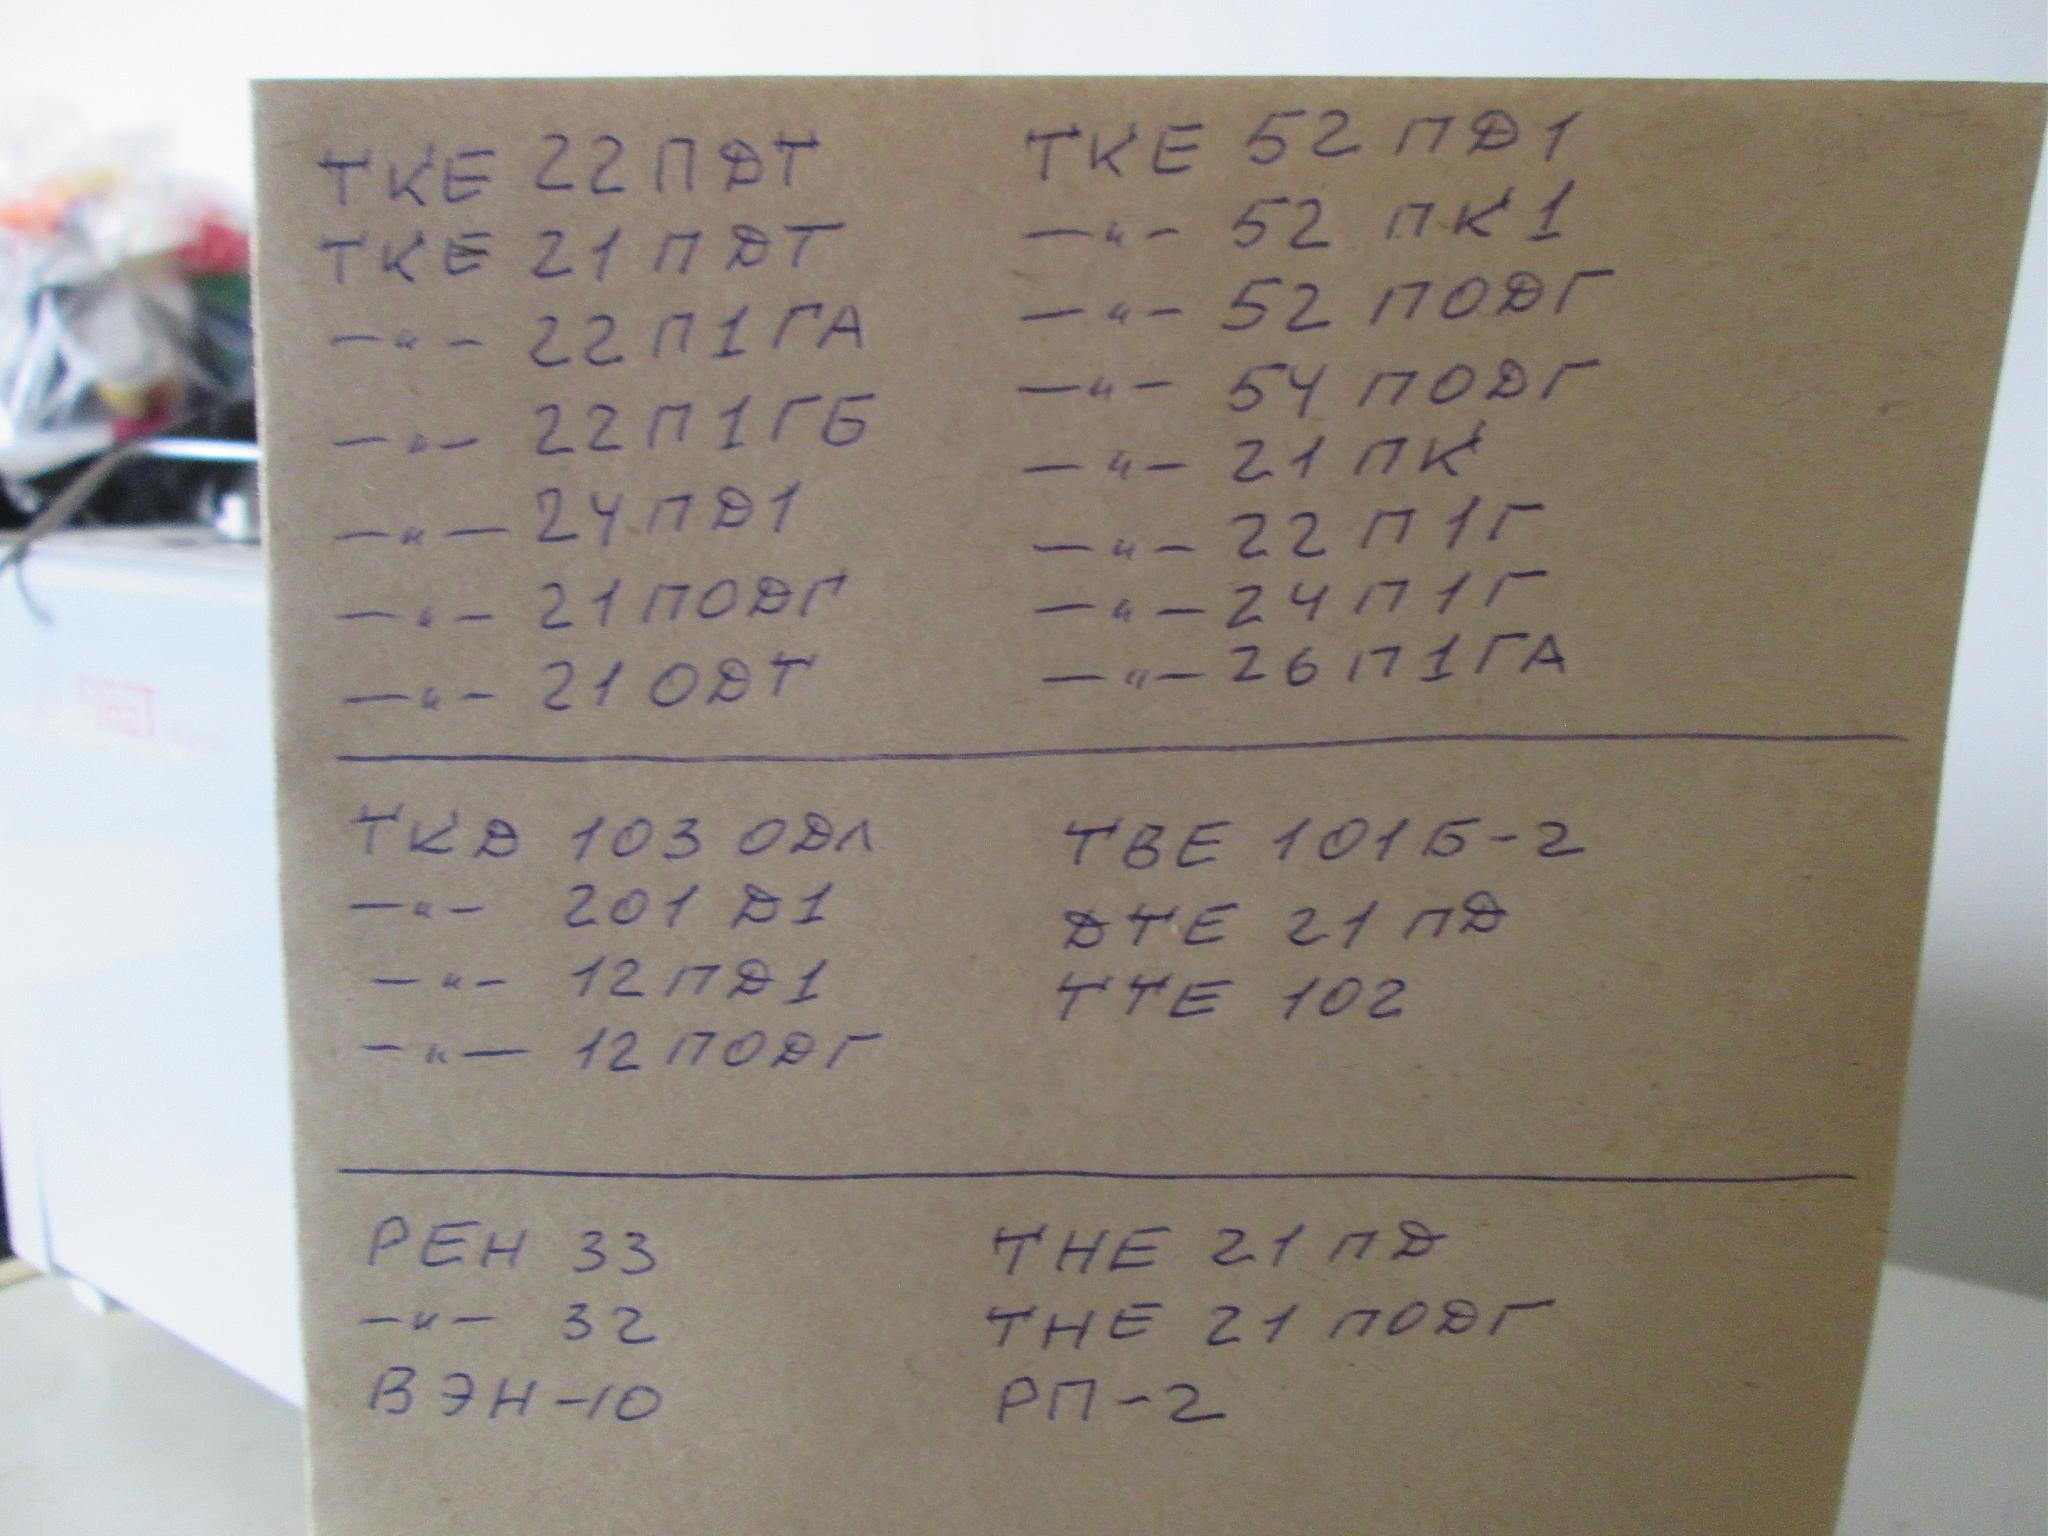 ТКЕ 22 ПДТ
ТКЕ 21 ПДТ
—"— 22 П1ГА
—"— 22 П1ГБ
—"— 24 ПД1
—"— 21 ПОДГ
—"— 21 ОДТ
ТКЕ 52 ПД1
—"— 52 ПК1
—"— 52 ПОДГ
—"— 54 ПОДГ
—"— 21 ПК
—"— 22 П1Г
—"— 24 П1Г
—"— 26 П1ГА
ТКД 103 ОДЛ
—"— 201 Д1
—"— 12 ПД1
—"— 12 ПОДГ
ТВЕ 101Б-2
ДТЕ 21 ПД
ТТЕ 102
РЕН 33
—"— 32
ВЭН-10
ТНЕ 21 ПД
ТНЕ 21 ПОДГ
РП-2